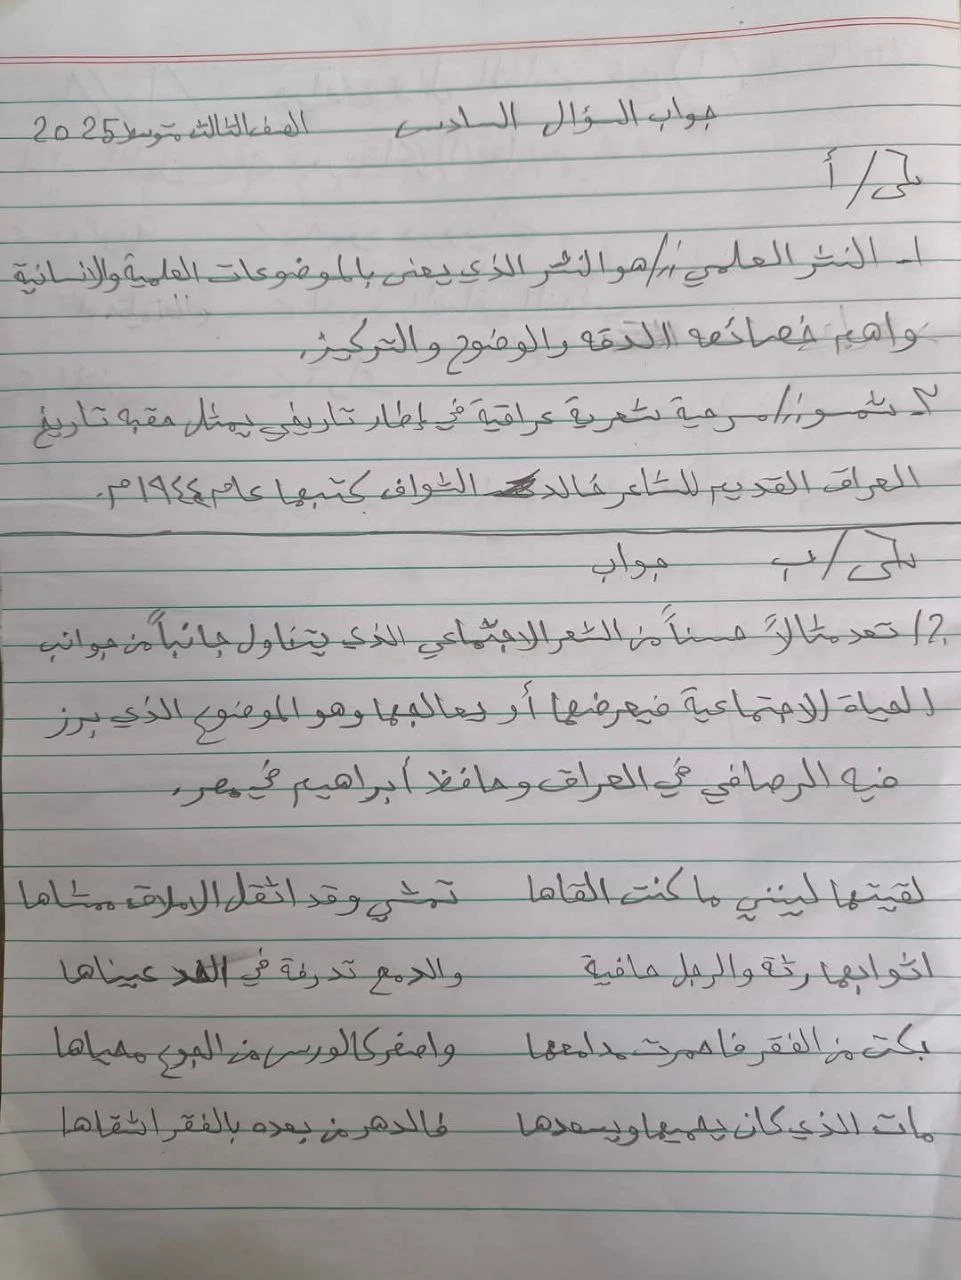 جواب السؤال السادس الصف الثالث متوسط 2025
أ/
١- النثر العلمي // هو النثر الذي يعنى بالموضوعات العلمية والانسانية
واهم خصائصه الدقه والوضوح والتركيز.
٢- شمسو // مسرحية شعرية عراقية في إطار تاريخي يمثل حقبه تاريخ
العراق القديم للشاعر خالد الشواف كتبها عام ١٩٤٤م.
ب/ جواب
2/ تعد مثالاً حسناً من الشعر الاجتماعي الذي يتناول جانباً من جوانب
الحياة الاجتماعية فيعرضها أو يعالجها وهو الموضوع الذي برز
فيه الرصافي في العراق وحافظ أبراهيم في مصر.
لقيتها ليتني ما كنت القاها تمشي وقد اثقل الاملاق ممشاها
اثوابها رثة والرجل حافية والدمع تذرفة في الخد عيناها
بكت من الفقر فاحمرت مدامعها واصفر كالورس من الجوع محياها
مات الذي كان يحميها ويسعدها فالدهر من بعده بالفقر اشقاها